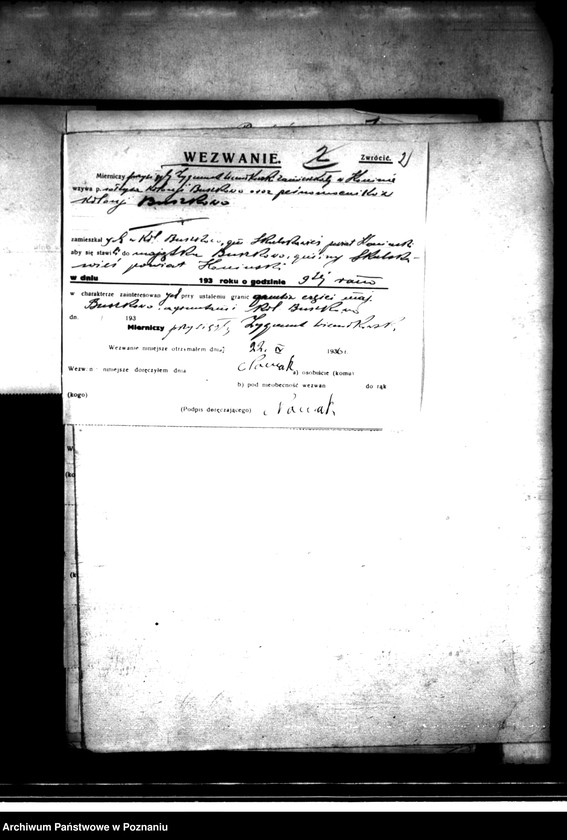 WEZWANIE. 2 Zwrócić. 2)
Mierniczy przysięgły Zygmunt zamieszkały w Koninie
wzywa p. sołtysa Kolonji Buszkowo oraz pełnomocnika
Kolonji Buszkowo
zamieszkał ych w Kol. Buszkowo, gm. powiat Koniński
aby się stawił do majątku Buszkowo, gminy
powiat Koniński
w dniu 193 roku o godzinie 9tej rano
w charakterze zainteresowan ych przy ustaleniu granic części maj.
Buszkowo Kol. Buszkowo
dn. 193 Mierniczy przysięgły Zygmunt
Wezwanie niniejsze otrzymałem dnia 22. IV 1936 r.
Wezwanie niniejsze doręczyłem dnia Nowak a) osobiście (komu)
b) pod nieobecność wezwan do rąk
(kogo)
(Podpis doręczającego) Nowak
W
(ko
(k
Archiwum Państwowe w Poznaniu